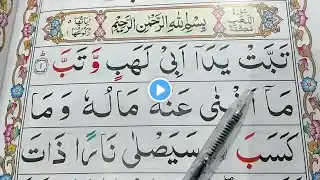 بِسْمِ اللهِ الرَّحْمٰنِ الرَّحِيْمِ
تَبَّتْ يَدَاۤ اَبِیْ لَهَبٍ وَّتَبَّ
مَاۤ اَغْنٰی عَنْهُ مَالُهٗ وَمَا
كَسَبَ سَيَصْلٰی نَارًا ذَاتَ